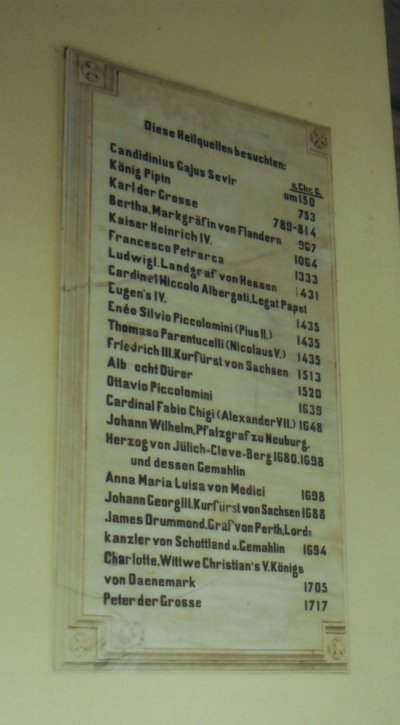 Diese Heilquellen besuchten:
n.Chr. G.
Candidinius Gajus Sevir um 150
König Pipin 753
Karl der Grosse 789-814
Bertha, Markgräfin von Flandern 967
Kaiser Heinrich IV. 1064
Francesco Petrarca 1333
Ludwig I. Landgraf von Hessen 1431
Cardinel Niccolo Albergati, Legat Papst
Eugen's IV. 1435
Enéo Silvio Piccolomini (Pius II.) 1435
Thomaso Parentucelli (Nicolaus V.) 1435
Friedrich III. Kurfürst von Sachsen 1513
Alb echt Dürer 1520
Ottavio Piccolomini 1639
Cardinal Fabio Chigi (Alexander VII.) 1648
Johann Wilhelm, Pfalzgraf zu Neuburg,
Herzog von Jülich-Cleve-Berg 1680.1698
und dessen Gemahlin
Anna Maria Luisa von Medici 1698
Johann Georg III. Kurfürst von Sachsen 1688
James Drummond, Graf von Perth, Lord=
kanzler von Schottland u. Gemahlin 1694
Charlotte, Wittwe Christian's V. Königs
von Daenemark 1705
Peter der Grosse 1717